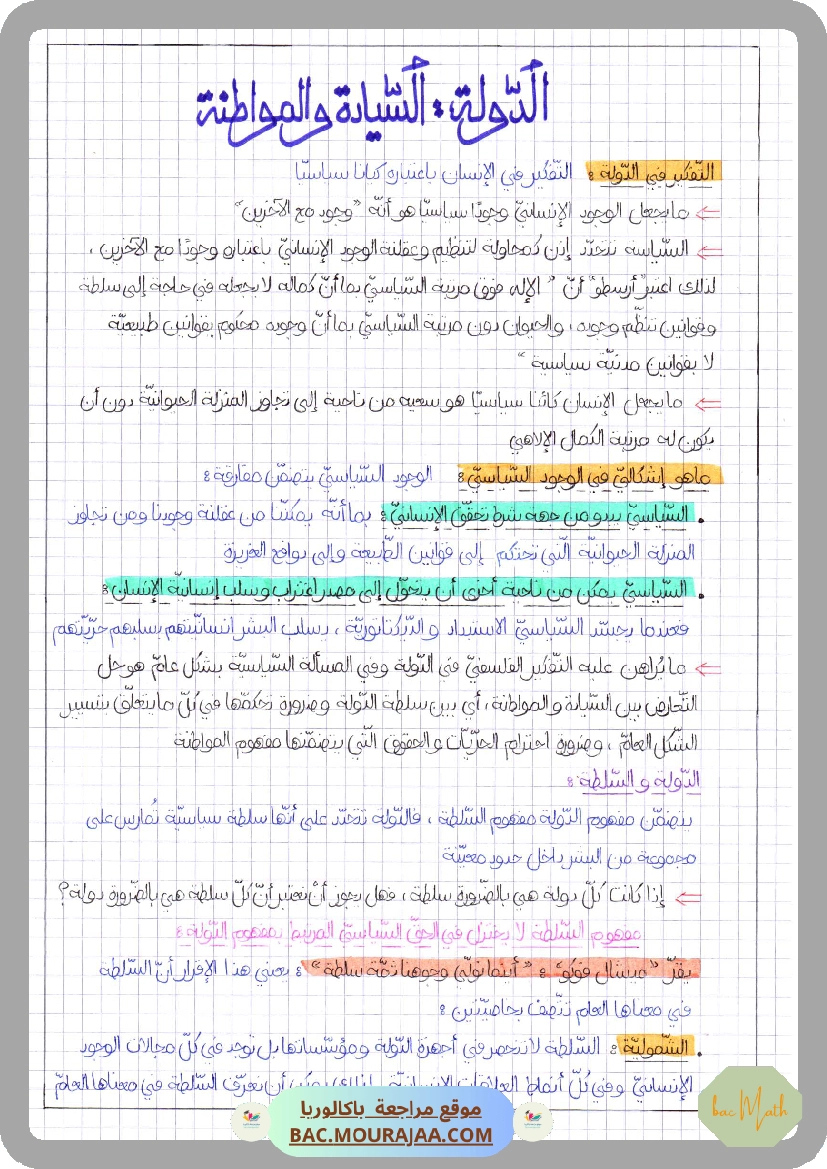 الدّولة: السّيادة والمواطنة
التّفكير في الدّولة: التّفكير في الإنسان باعتباره كيانا سياسيّا
⇐ ما يجعل الوجود الإنسانيّ وجودًا سياسيّا هو أنّه "وجود مع الآخرين"
⇐ السّياسة تتحدّد إذن كمحاولة لتنظيم وعقلنة الوجود الإنسانيّ باعتباره وجودًا مع الآخرين،
لذلك اعتبر أرسطو أنّ "الإله فوق مرتبة السّياسيّ بما أنّ كماله لا يجعله في حاجة إلى سلطة
وقوانين تنظّم وجوده، والحيوان دون مرتبة السّياسيّ بما أنّ وجوده محكوم بقوانين طبيعيّة
لا بقوانين مدنيّة سياسية"
⇐ ما يجعل الإنسان كائنا سياسيّا هو سعيه من ناحية إلى تجاوز المنزلة الحيوانيّة دون أن
يكون له مرتبة الكمال الإلاهي
ماهو إشكاليّ في الوجود السّياسيّ: الوجود السّياسيّ يتضمّن مفارقة:
. السّياسيّ يبدو من جهة شرط تحقّق الإنسانيّ: بما أنّه يمكّننا من عقلنة وجودنا ومن تجاوز
المنزلة الحيوانيّة الّتي تحتكم إلى قوانين الطّبيعة وإلى دوافع الغريزة
. السّياسيّ يمكن من ناحية أخرى أن يتحوّل إلى مصدر اغتراب وسلب إنسانيّة الإنسان:
فعندما يجسّد السّياسيّ الاستبداد والدّيكتاتوريّة، يسلب البشر انسانيّتهم بسلبهم حرّيّتهم
⇐ ما يُراهن عليه التّفكير الفلسفيّ في الدّولة وفي المسألة السّياسيّة بشكل عامّ هو حل
التّعارض بين السّيادة والمواطنة، أي بين سلطة الدّولة وضرورة تحكمّها في كلّ ما يتعلّق بتسيير
الشّكل العامّ، وضرورة احترام الحرّيّات والحقوق الّتي يتضمّنها مفهوم المواطنة
الدّولة والسّلطة:
يتضمّن مفهوم الدّولة مفهوم السّلطة، فالدّولة تتحدّد على أنّها سلطة سياسيّة تُمارس على
مجموعة من البشر داخل حدود معيّنة
⇐ إذا كانت كلّ دولة هي بالضّرورة سلطة، فهل يجوز أنْ نعتبر أنّ كلّ سلطة هي بالضّرورة دولة؟
مفهوم السّلطة لا يختزل في الحقّ السّياسيّ المرتبط بمفهوم الدّولة:
يقرّ "ميشال فوكو": "أينما نولّي وجوهنا ثمّة سلطة": يعني هذا الإقرار أنّ السّلطة
في معناها العام تتّصف بخاصيّتين:
. الشّموليّة: السّلطة لا تنحصر في أجهزة الدّولة ومؤسّساتها بل توجد في كلّ مجالات الوجود
الإنسانيّ وفي كُلّ أنماط العلاقات الإنسانيّة، لذلك يمكن أن نعرّف السّلطة في معناها العامّ
موقع مراجعة باكالوريا
BAC.MOURAJAA.COM
bac Math